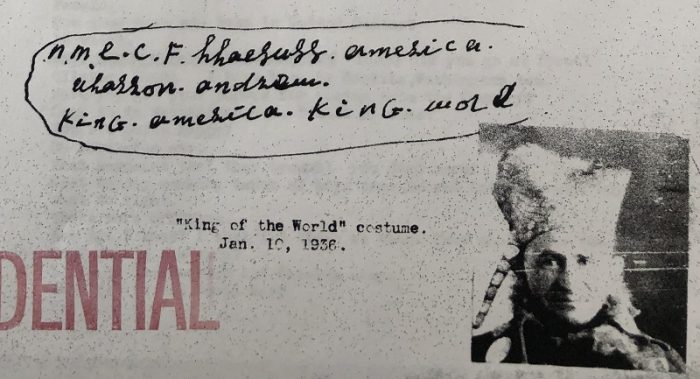 n.m.e.c.F. america.
andrew.
King. america. King. wold
"King of the World" costume.
Jan. 10, 1936.
DENTIAL